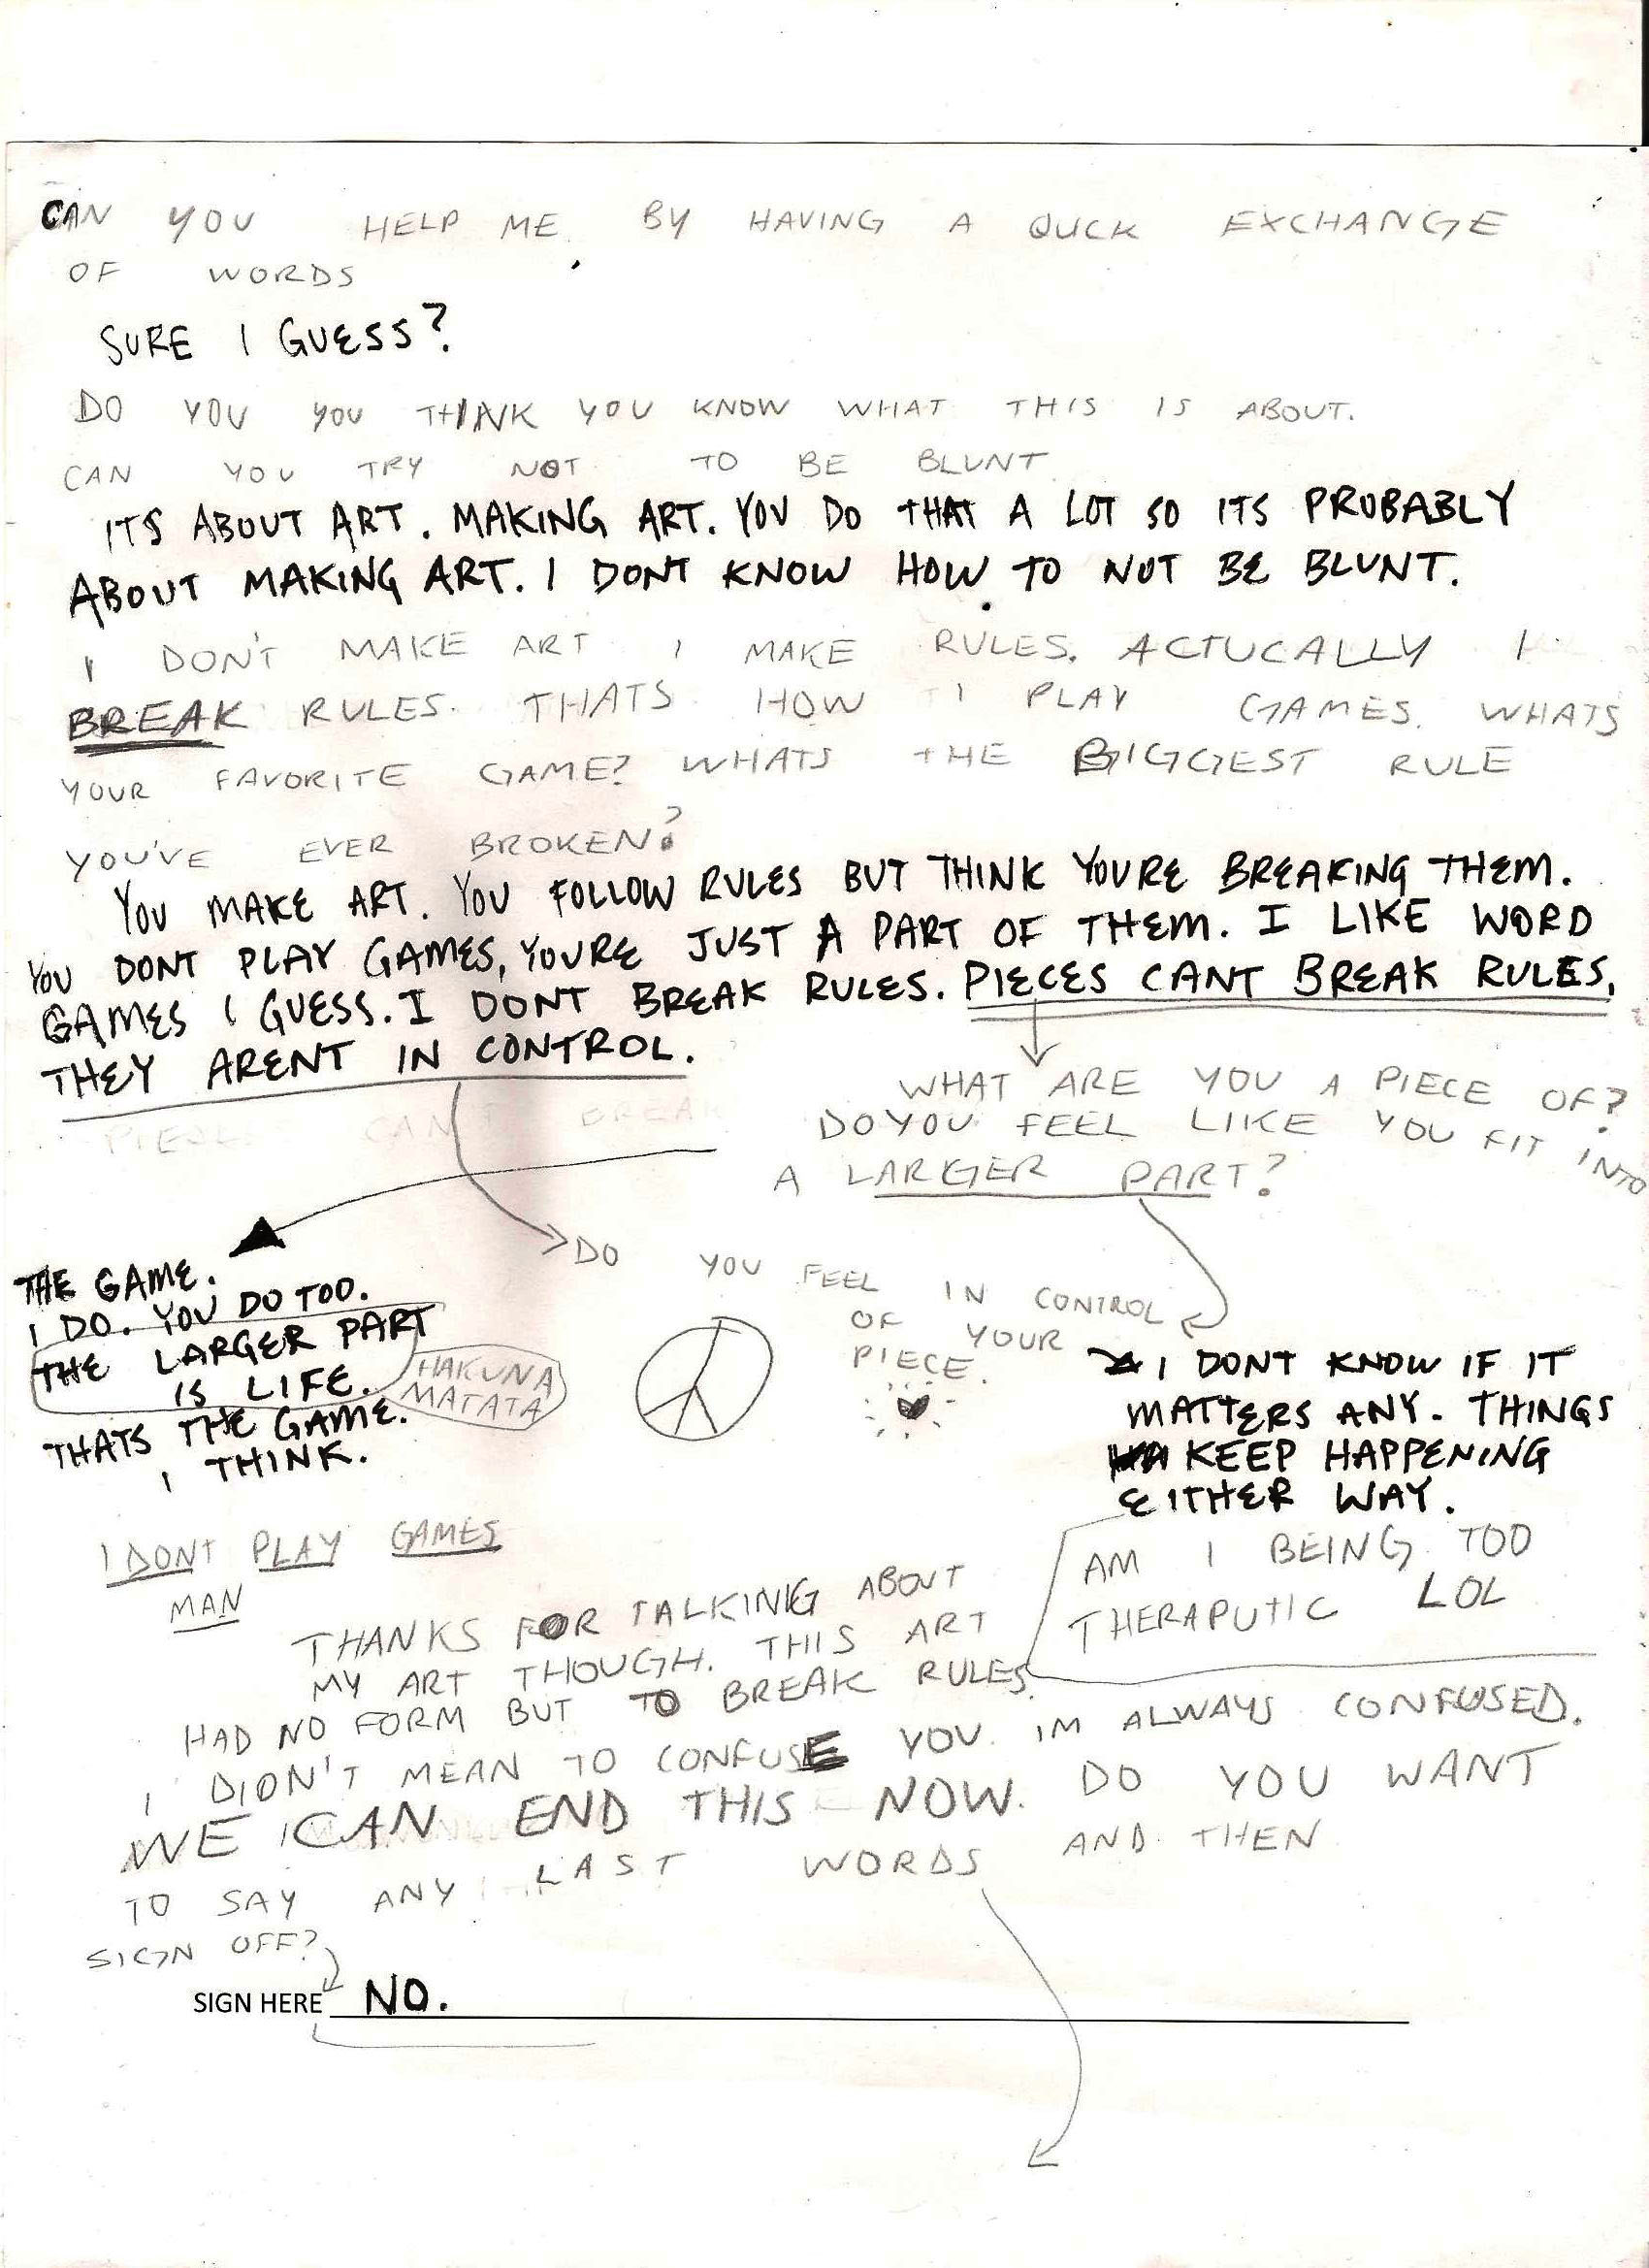 CAN YOU HELP ME BY HAVING A QUCK EXCHANGE
OF WORDS
SURE I GUESS?
DO YOU YOU THINK YOU KNOW WHAT THIS IS ABOUT.
CAN YOU TRY NOT TO BE BLUNT
ITS ABOUT ART. MAKING ART. YOU DO THAT A LOT SO ITS PROBABLY
ABOUT MAKING ART. I DONT KNOW HOW TO NOT BE BLUNT.
I DON'T MAKE ART I MAKE RULES. ACTUCALLY I
BREAK RULES. THATS HOW I PLAY GAMES. WHATS
YOUR FAVORITE GAME? WHATS THE BIGGEST RULE
YOU'VE EVER BROKEN?
YOU MAKE ART. YOU FOLLOW RULES BUT THINK YOURE BREAKING THEM.
YOU DONT PLAY GAMES, YOURE JUST A PART OF THEM. I LIKE WORD
GAMES I GUESS. I DONT BREAK RULES. PIECES CANT BREAK RULES,
THEY ARENT IN CONTROL.
PIECE CAN'T BREAK
WHAT ARE YOU A PIECE OF?
DO YOU FEEL LIKE YOU FIT INTO
A LARGER PART?
THE GAME.
I DO. YOU DO TOO.
THE LARGER PART
IS LIFE.
THATS THE GAME.
I THINK.
HAKUNA
MATATA
DO YOU FEEL IN CONTROL
OF YOUR
PIECE.
I DONT KNOW IF IT
MATTERS ANY. THINGS
KEEP HAPPENING
EITHER WAY.
AM I BEING TOO
THERAPUTIC LOL
I DONT PLAY GAMES
MAN
THANKS FOR TALKING ABOUT
MY ART THOUGH. THIS ART
HAD NO FORM BUT TO BREAK RULES.
I DIDN'T MEAN TO CONFUSE YOU. IM ALWAYS CONFUSED.
WE CAN END THIS NOW. DO YOU WANT
TO SAY ANY LAST WORDS AND THEN
SIGN OFF?
SIGN HERE NO.